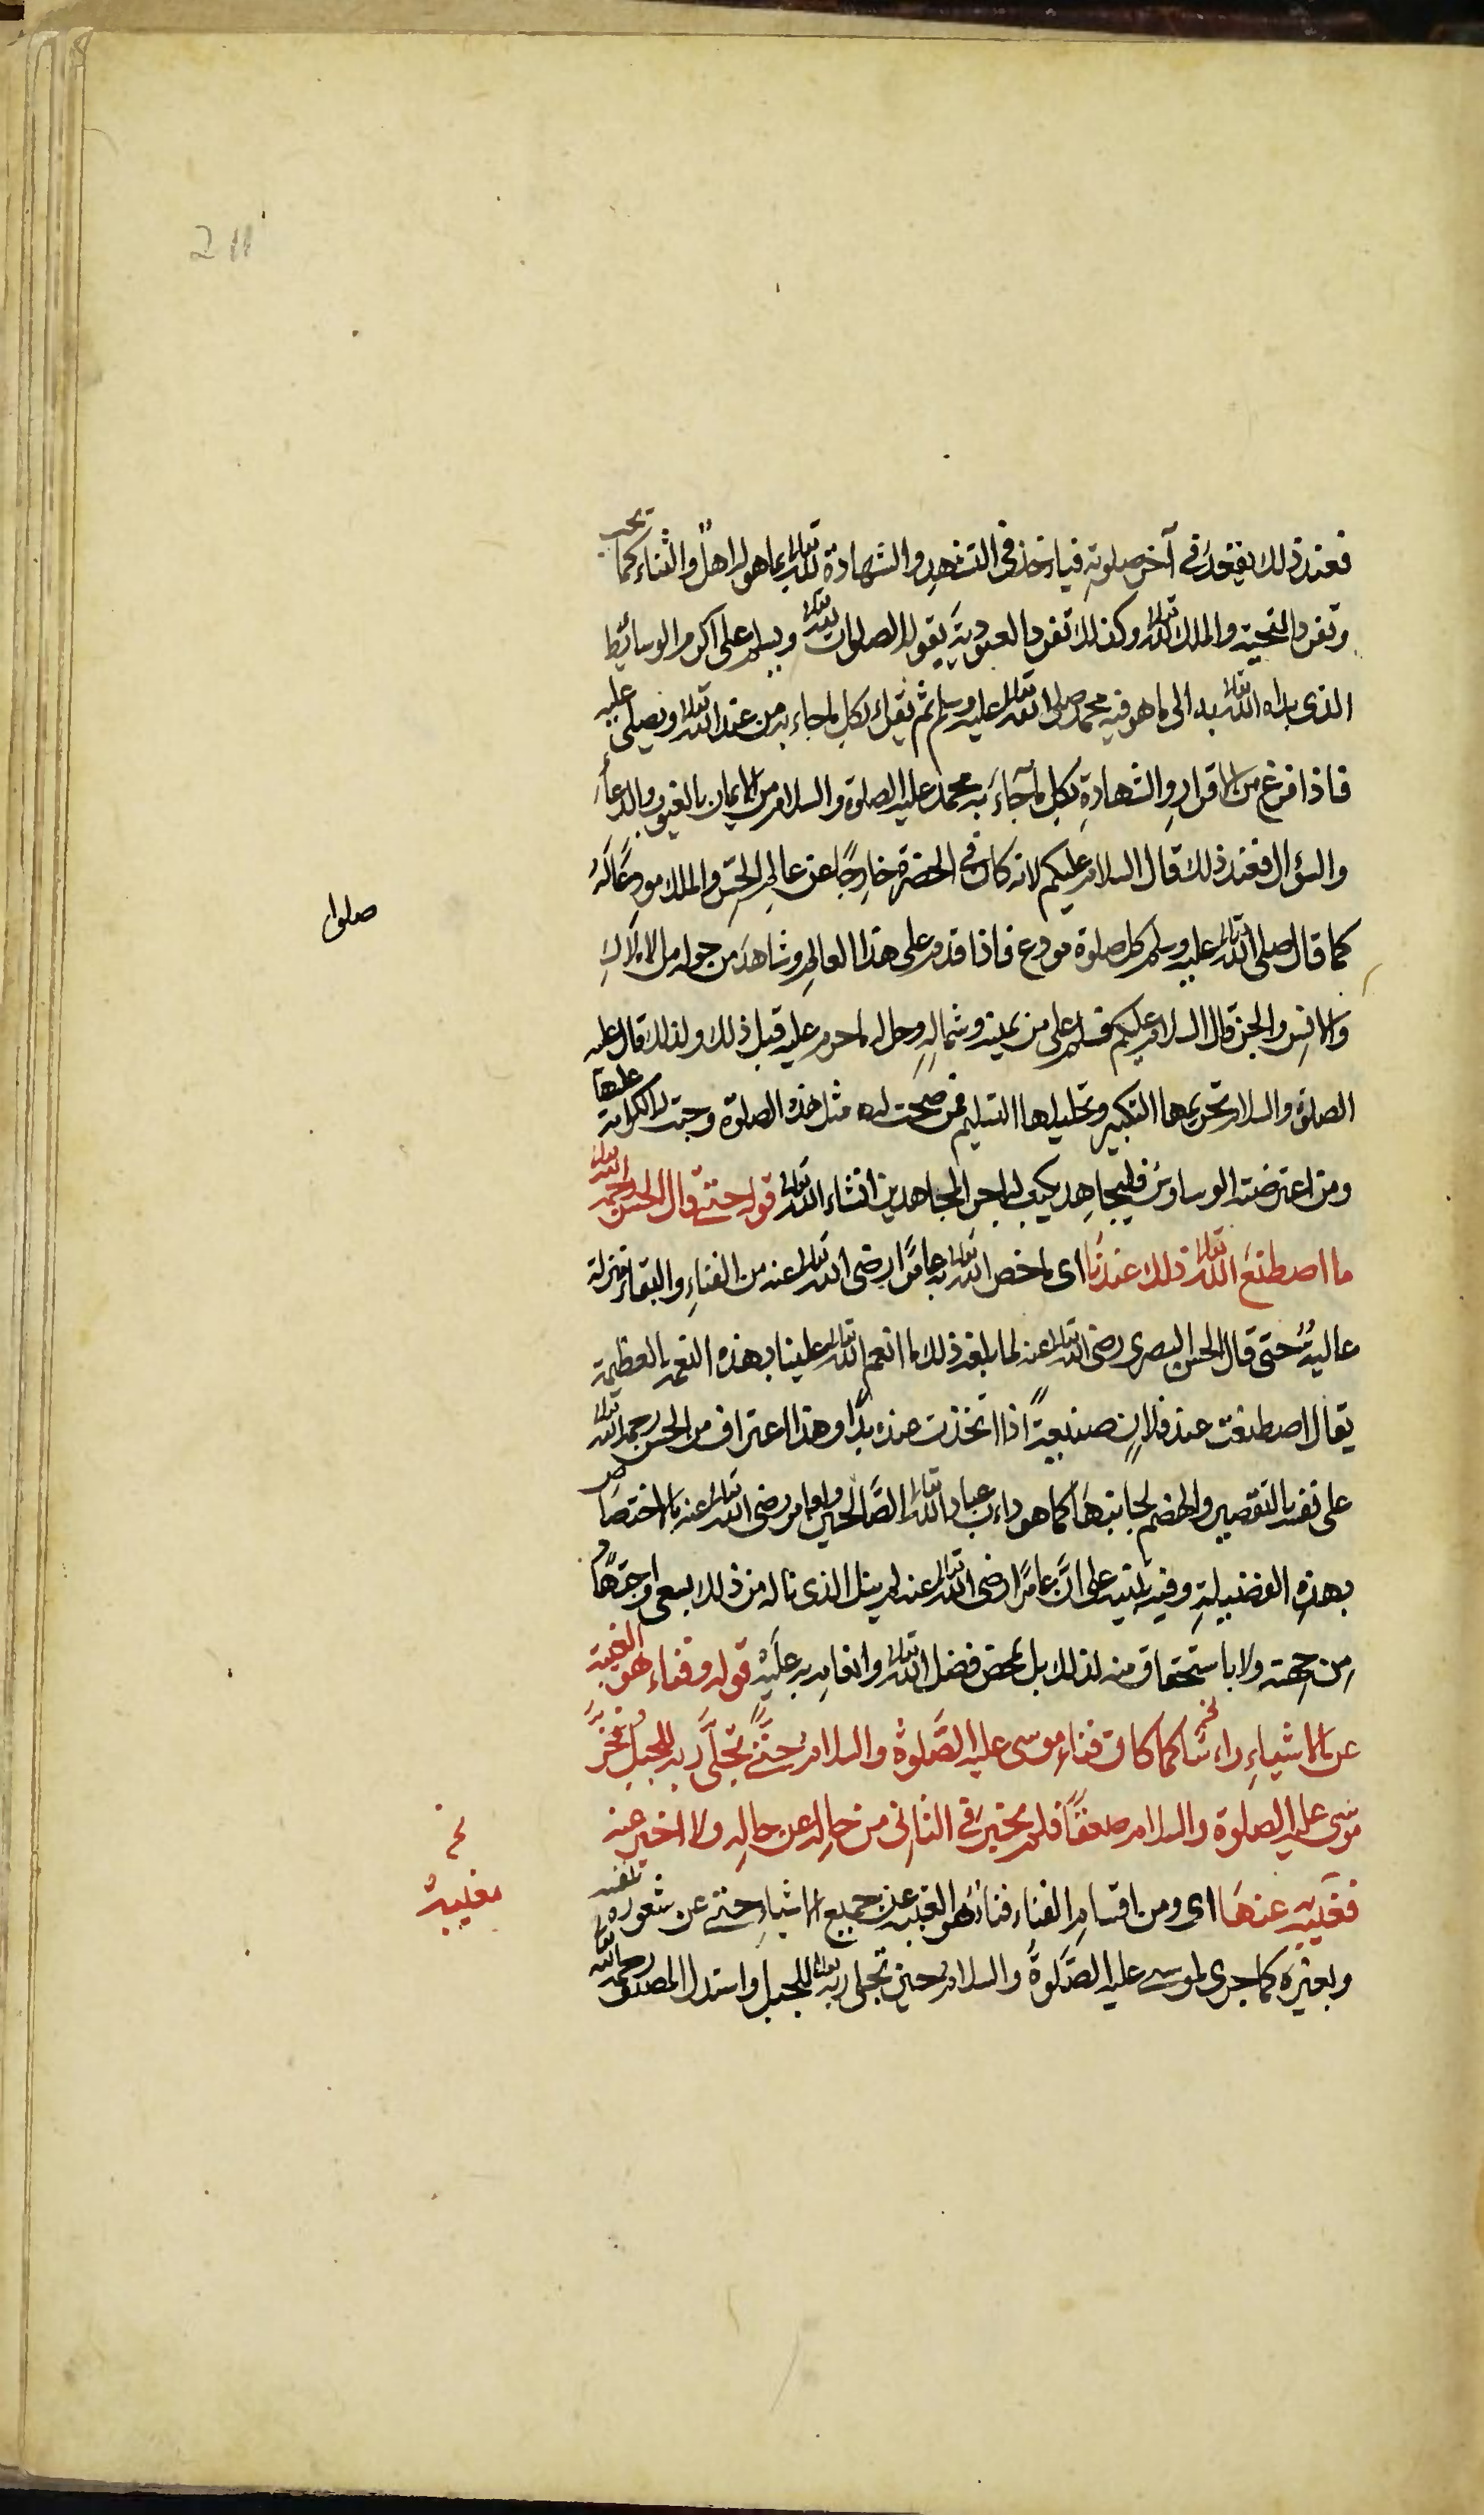 211
فعند ذلك يقعد في آخر صلوته فياخذ في التشهد والشهادة لله تعالى بما هو له اهل والثناء كما يحب
وتفرد التحية والملك لله تعالى وكذلك تفرد العبودية يقول الصلوات لله تعالى ويسلم على اكرم الوسائط
الذى هداه الله تعالى به الى ما هو فيه محمد صلى الله تعالى عليه وسلم ثم يقر بكل ما جاء به من عند الله تعالى ويصلى عليه
فاذا فرغ من الاقرار والشهادة بكل ما جآء به محمد عليه الصلوة والسلام من الايمان بالغيوب والدعاء
والسؤال فعند ذلك قال السلام عليكم لانه كان في الحضرة خارجًا عن عالم الحس والملك مودعًا له
صلوا
كما قال صلى الله تعالى عليه وسلم كل صلوة مودع فاذا قدم على هذا العالم وشاهد من حوله من الاملاك
والانس والجن قال السلام عليكم فسلم على من يمينه وشماله وحل له ما حرم عليه قبل ذلك ولذلك قال عليه
الصلوة والسلام تحريمها التكبير وتحليلها التسليم فمن صحت له مثل هذه الصلوة وجبت له الكرامة عليها
ومن اعترضته الوساوس فليجاهد يكتب له اجر المجاهدين انشاء الله تعالى قوله حتى قال الحسن رحمه الله تعالى
ما اصطنع الله تعالى ذلك عندنا اى ما خص الله تعالى به عامرًا رضى الله تعالى عنه من الفناء والبقاء منزلة
عالية حتى قال الحسن البصرى رضى الله تعالى عنه لما بلغه ذلك ما انعم الله تعالى علينا بهذه النعمة العظيمة
يقال اصطنعت عند فلان صنيعةً اذا اتخذت عنده يدًا وهذا اعتراف من الحسن رحمه الله تعالى
على نفسه بالتقصير والهضم لجانبها كما هو داءب عباد الله تعالى الصالحين ولعامر رضى الله تعالى عنه بالاختصاص
بهذه الفضيلة وفيه تنبيه على ان عامرًا رضى الله تعالى عنه لم ينل الذى ناله من ذلك بسعى واجتهاد
من جهته ولا باستحقاق منه لذلك بل بمحض فضل الله تعالى وانعامه به عليه قوله وفناء هو الغيبة
عن الاشياء راءسا كما كان فناء موسى عليه الصلوة والسلام حتى تجلى ربه للجبل فخر
موسى عليه الصلوة والسلام صعقًا فلم يخبر في الثانى من حاله عن حاله ولا اخبر عنه
نخـ
مغيبه
فغيبته عنها اى ومن اقسام الفناء فناء هو الغيبة عن جميع الاشياء حتى عن شعوره بنفسه
وبغيره كما جرى لموسى عليه الصلوة والسلام حين تجلى ربه تعالى للجبل واستدل المصنف رحمه الله تعالى